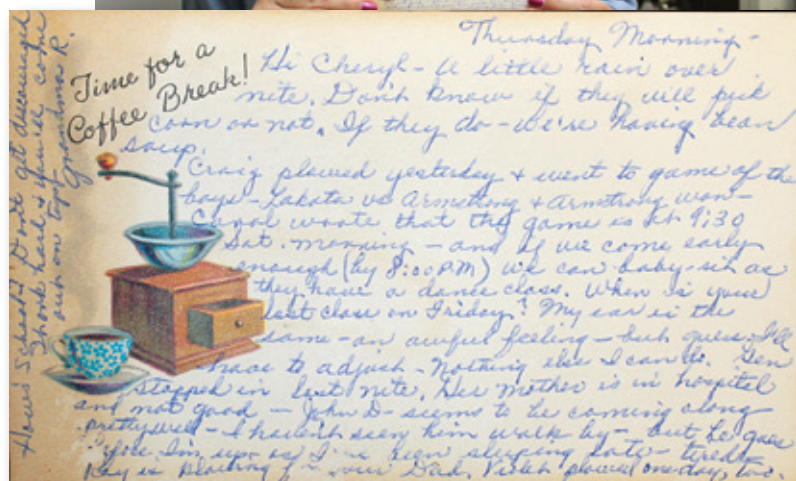 Time for a
Coffee Break!
Thursday Morning -
Hi Cheryl - A little rain over
nite. Don't know if they will pick
corn or not. If they do - we're having bean
soup.
Craig plowed yesterday & went to game of the
boys - Lakota vs Armstrong & Armstrong won -
Carol wrote that the game is at 9:30
Sat. morning - and if we come early
enough (by 8:00 P.M) we can baby-sit as
they have a dance class. When is your
last class on Friday? My ear is the
same - an awful feeling - but guess I'll
have to adjust - Nothing else I can do. Gen
stopped in last nite. Her mother is in hospital
and not good - John D - seems to be coming along
pretty well - I haven't seen him walk by - but he goes
I'm up as I've been sleeping late - tired
Ray is your Dad. Violet plowed one day, too.
Hows School? Don't get discouraged
Work hard & you'll come
out on top!
Grandma R.